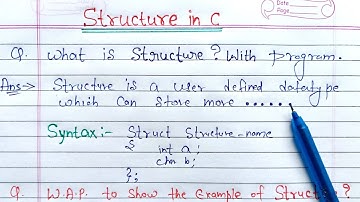 Structure in C
Date
Page
Q. What is Structure? With program.
Ans→ Structure is a user defined datatype
which can store more ......
Syntax:- Struct Structure-name
{ int a;
char b;
};
Q. W.A.P. to show the Example of Structure?